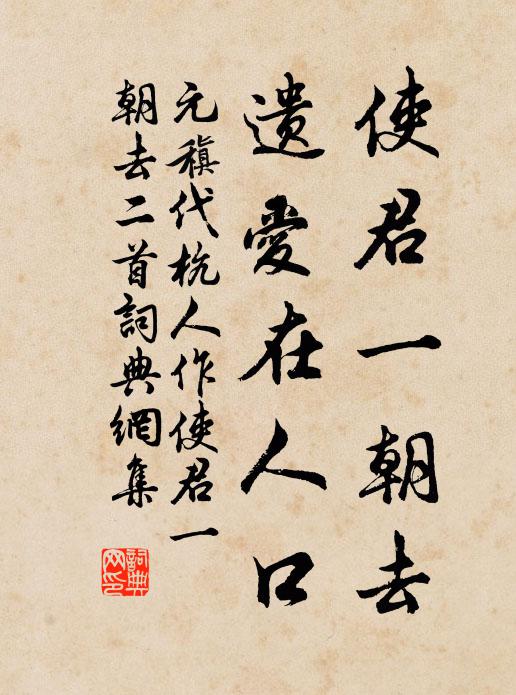 使君一朝去
遺愛在人口
元稹代杭人作使君一
朝去二首詞典網集
詞典网印